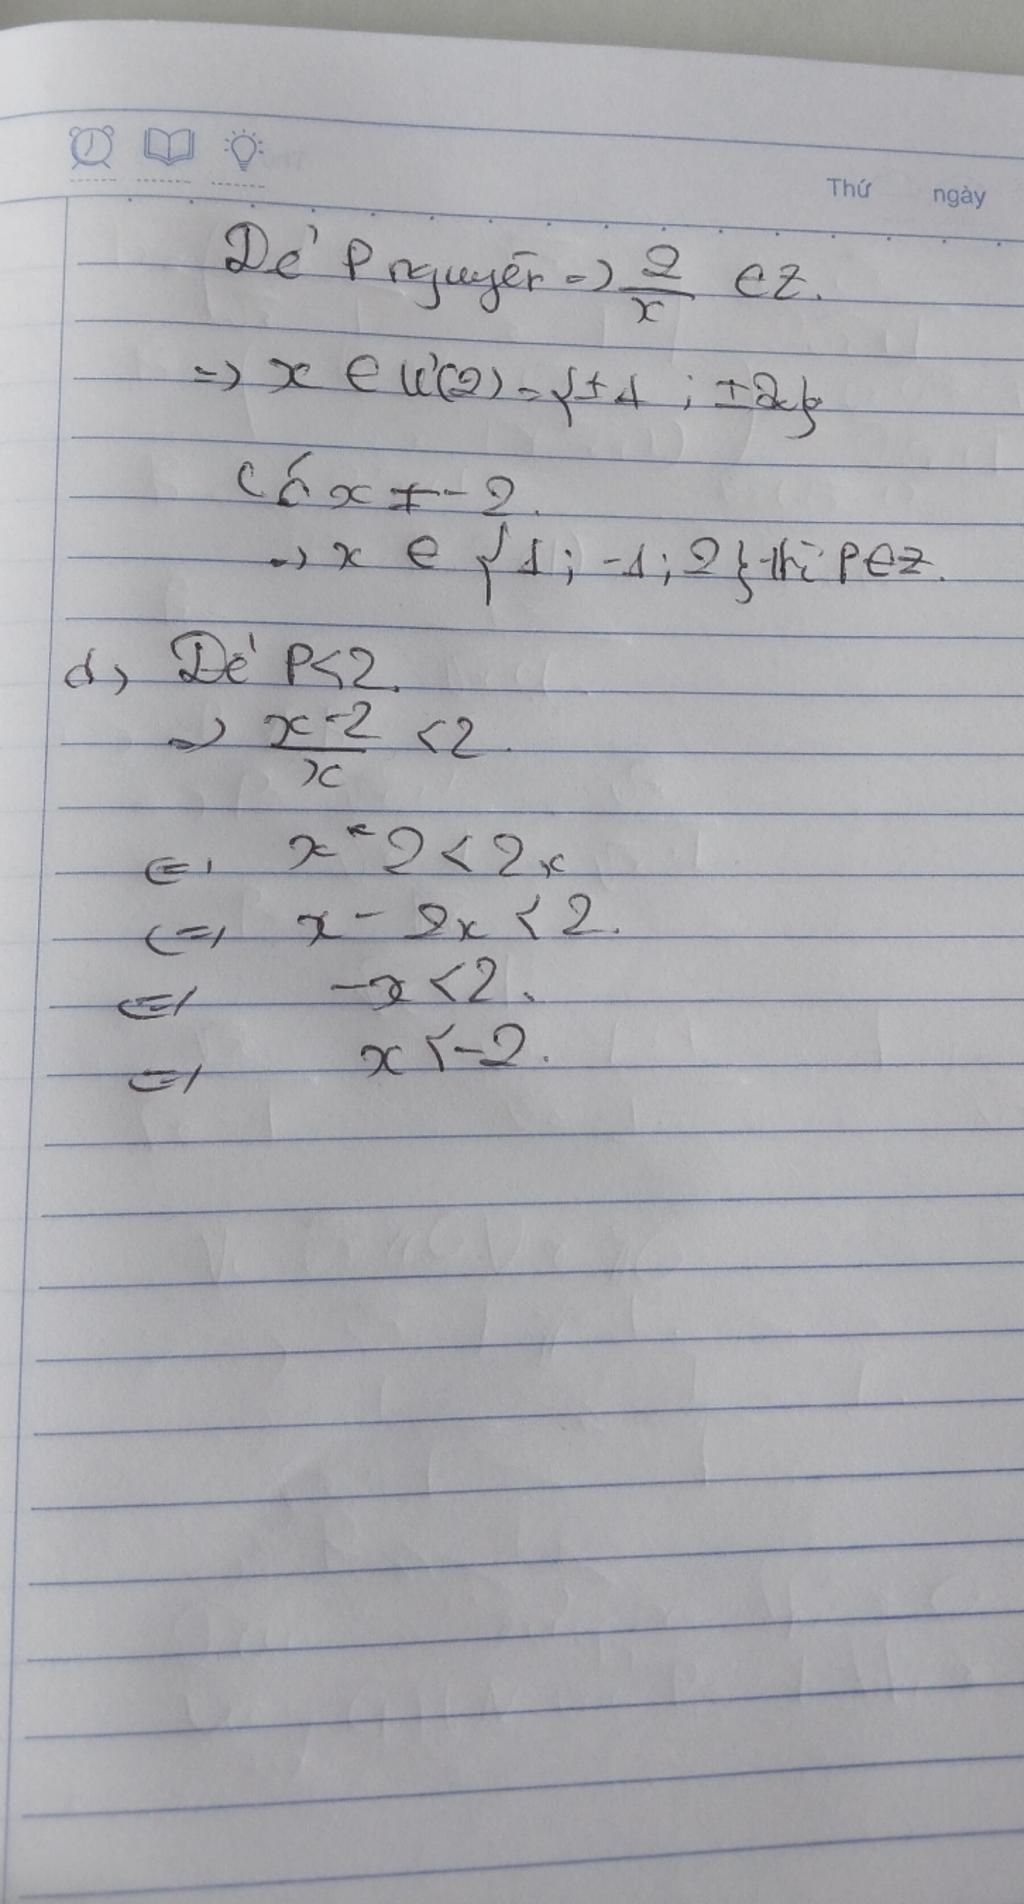 Thứ ngày
Để P nguyên => 2/x ∈ Z.
=> x ∈ Ư(2) = {±1 ; ±2}
Có x ≠ -2.
=> x ∈ {1 ; -1 ; 2} thì P ∈ Z.
d, Để P < 2.
=> x-2/x < 2.
<=> x - 2 < 2x
<=> x - 2x < 2.
<=> -x < 2.
<=> x < -2.